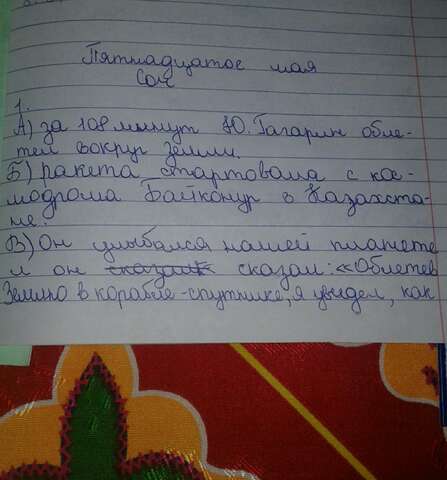 Пятнадцатое мая
Соч
1.
А) за 108 минут Ю. Гагарин обле-
тел вокруг земли.
Б) ракета стартовала с кос-
модрома Байконур в Казахста-
не.
В) Он улыбался нашей планете
и он сказал: «Облетев
Землю в корабле-спутнике, я увидел, как